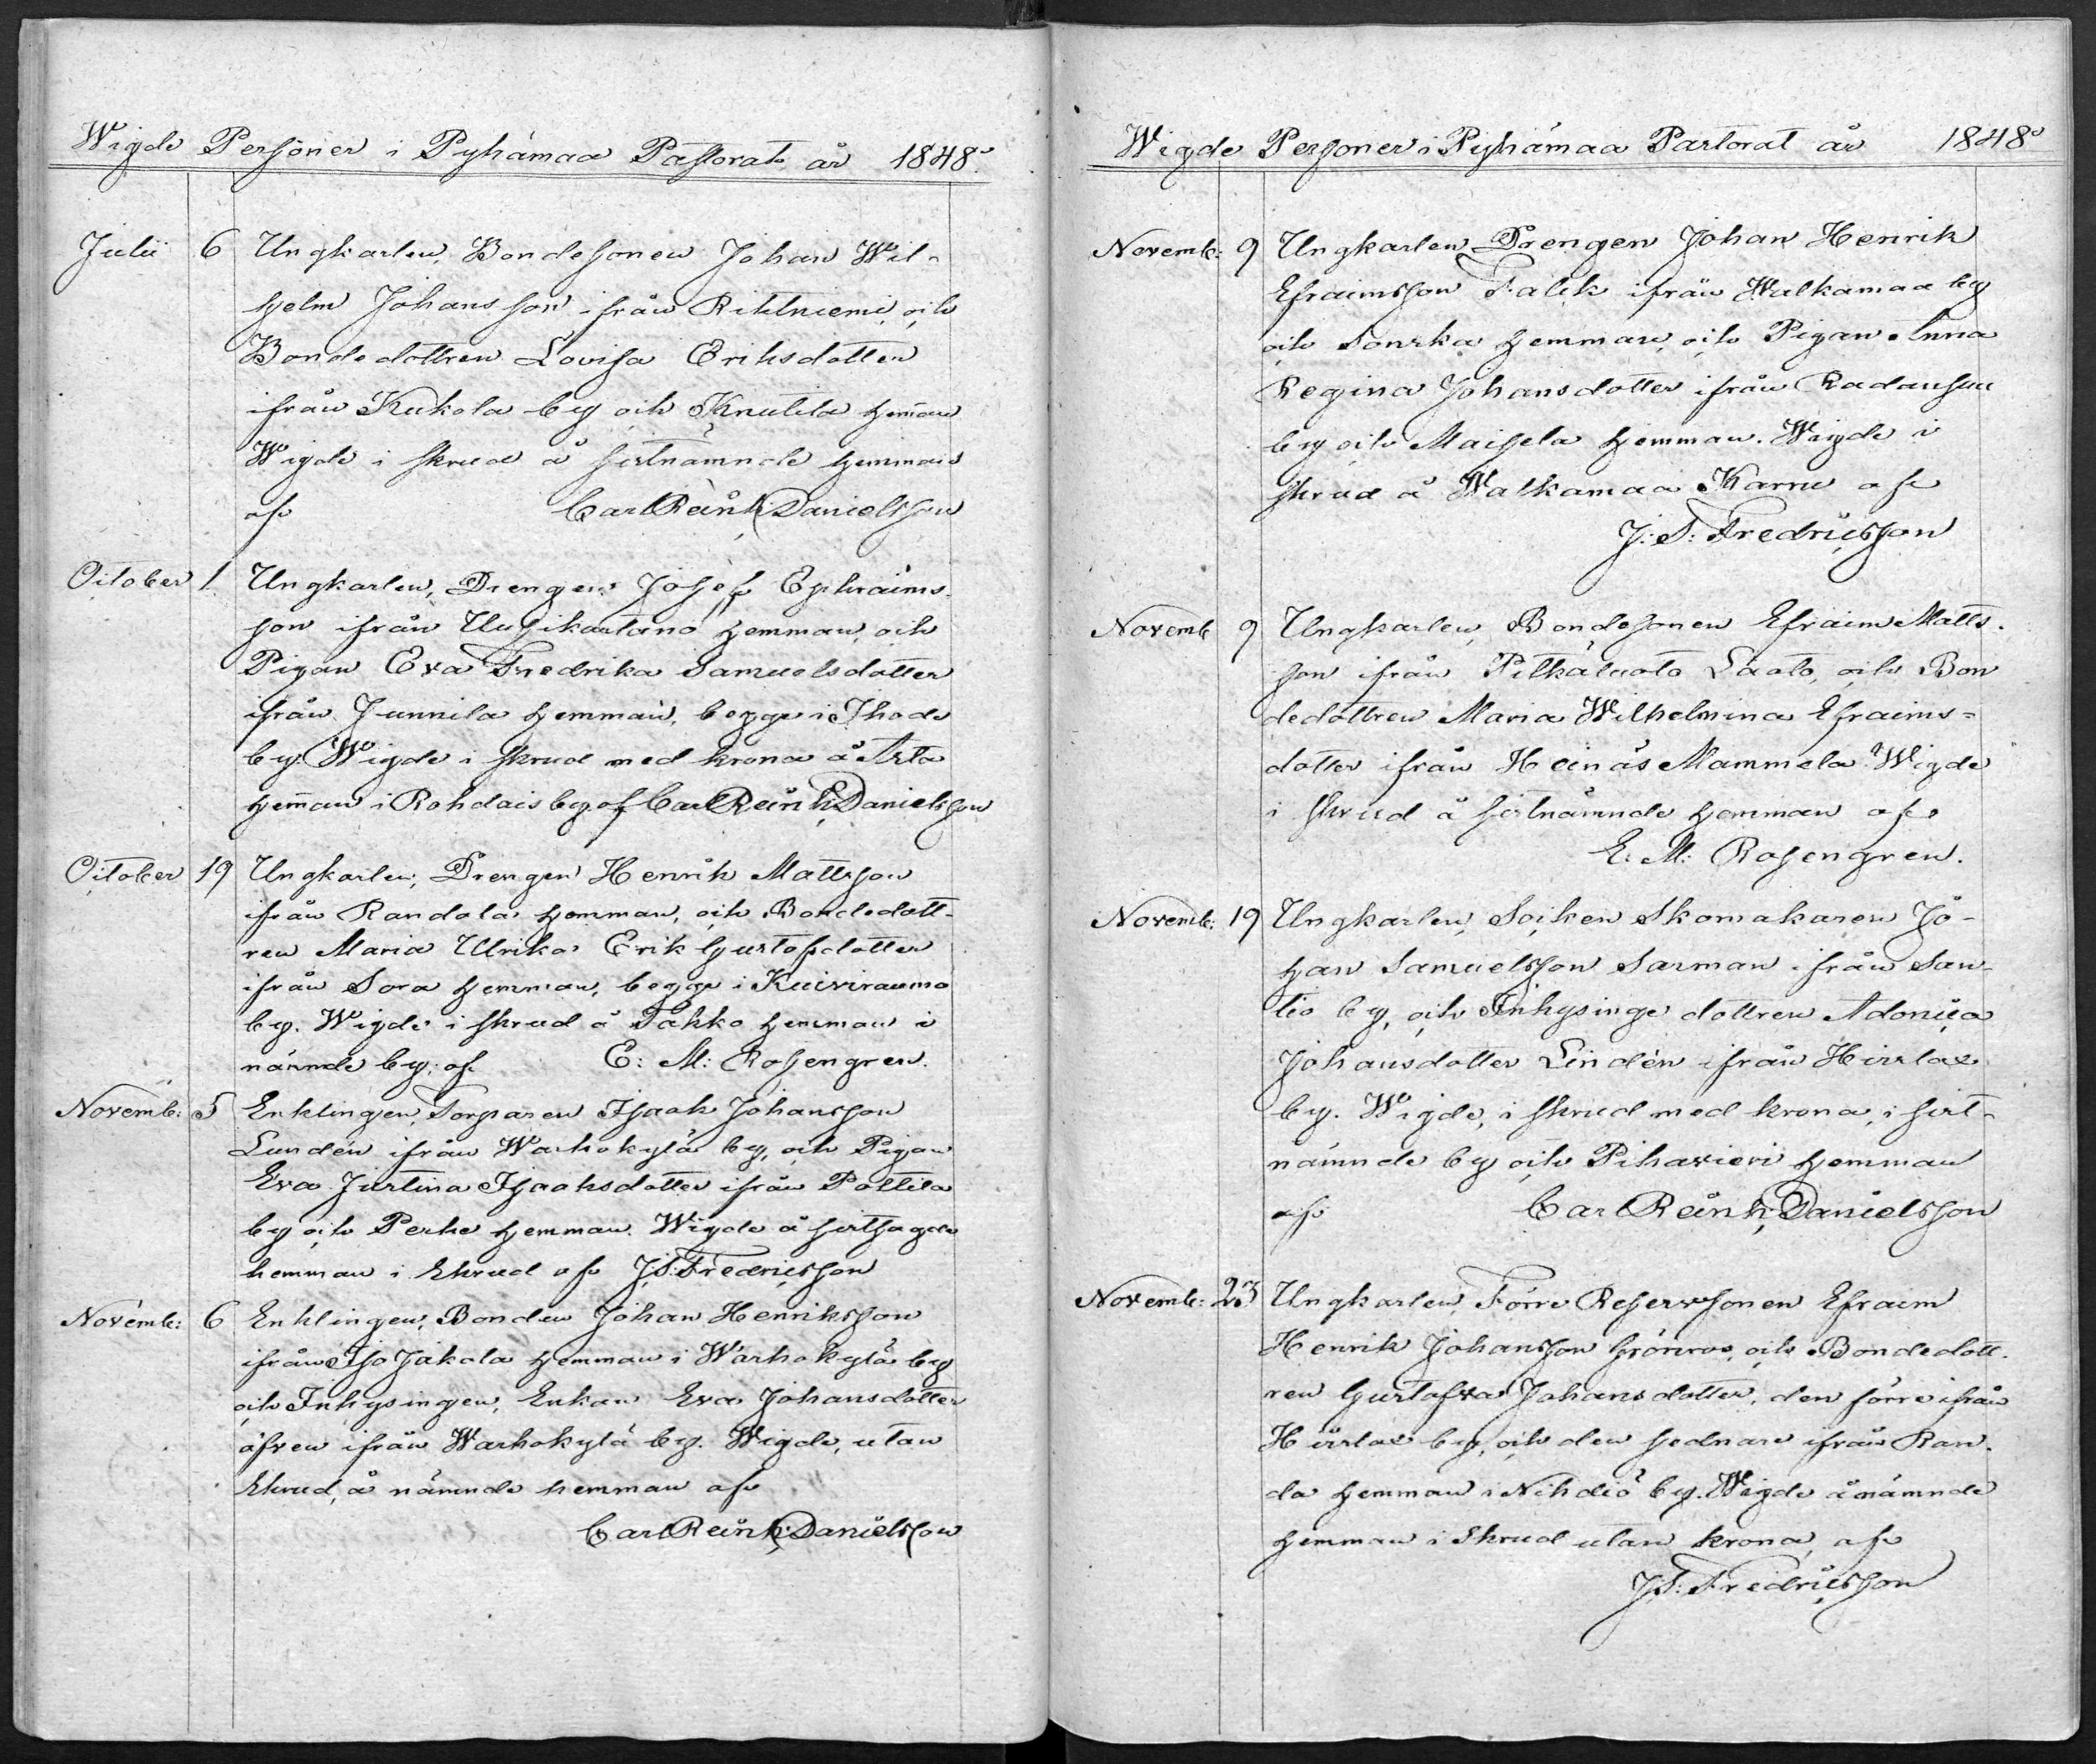 Wigde Personer i Pyhämaa Pastorat år 1848.
Julii 6 Ungkarlen, Bondesonen Johan Wil-
helm Johansson ifrån Rihtniemi, och
Bondedottren Lovisa Eriksdotter
ifrån Kukola by och Knutila hem̄an
Wigde i skrud å sistnämnde hemman
af Carl Reinh: Danielsson
October 1. Ungkarlen, Drengen Josef Ephraims-
son ifrån Uusikartano hemman, och
Pigan Eva Fredrika Samuelsdotter
ifrån Junnila hemman, begge i Ihode
by. Wigde i skrud med krona å Arta
hem̄an i Rohdais by. af Carl Reinh: Danielsson
October 19 Ungkarlen, Drengen Henrik Mattsson
ifrån Randala hemman, och Bondedott-
ren Maria Ulrika Erik Gustafsdotter
ifrån Sora hemman, begge i Kuivirauma
by. Wigde i skrud å Takko hemman i
nämnde by; af E: M: Rosengren.
Novemb: 5 Enklingen, Torparen Isaak Johansson
Lundén ifrån Warhokylä by, och Pigan
Eva Justina Isaaksdotter ifrån Polttila
by och Perhe hemman. Wigde å sistsagde
hemman i skrud af J: S: Fredricsson
Novemb: 6 Enklingen, Bonden Johan Henriksson
ifrån Iso Jakola hemman i Warhokylä by
och Inhysingen, Enkan Eva Johansdotter
äfven ifrån Warhokylä by. Wigde, utan
skrud, å nämnde hemman af
Carl Reinh: Danielsson
Wigde Personer i Pyhämaa Pastorat år 1848
Novemb: 9 Ungkarlen, Drengen Johan Henrik
Efraimsson Falck ifrån Walkamaa by
och Sonska hemman, och Pigan Anna
Regina Johansdotter ifrån Radansuu
by och Maisela hemman. Wigde i
skrud å Walkamaa Karru af
J: S: Fredricsson
Novemb 9 Ungkarlen, Bondesonen Efraim Matts-
son ifrån Pitkäluoto Laato, och Bon
dedottren Maria Wilhelmina Efraims-
dotter ifrån Heinäs Mammela. Wigde
i skrud å sistnämnde hemman af
E: M: Rosengren.
Novemb: 19 Ungkarlen, Socken Skomakaren Jo-
han Samuelsson Sarman ifrån San-
tio by, och Inhysinge dottren Adonica
Johansdotter Lindén ifrån Hirslax
by. Wigde, i skrud med krona, i sist-
nämnde by och Pihavieri hemman
af Carl Reinh: Danielsson
Novemb: 23 Ungkarlen, Förre Reservsonen Efraim
Henrik Johansson Grönros, och Bondedott-
ren Gustafva Johansdotter, den förre ifrån
Hirslax by, och den sednare ifrån Ran-
da hemman i Nihdiö by. Wigde å nämnde
hemman i skrud utan krona, af
J: S: Fredricsson